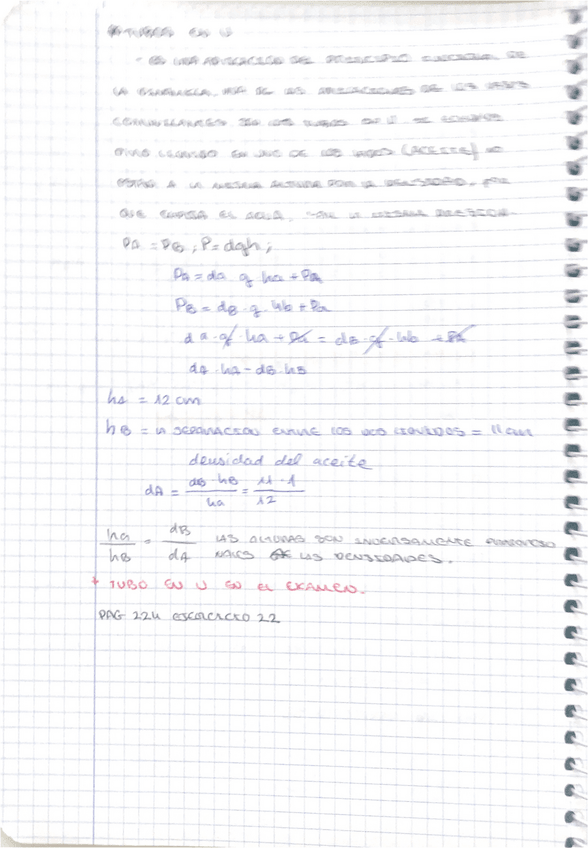 * TUBOS EN U
- ES UNA APLICACIÓN DEL PRINCIPIO DE
LA UNA DE LAS APLICACIONES DE LOS VASOS
COMUNICANTES. EN LOS TUBOS EN U SE
OTRO LÍQUIDO EN UNO DE LOS (ACEITE) NO
A LA MISMA ALTURA POR LA DENSIDAD,
QUE EL AGUA, LA MISMA PRESIÓN.
PA = PB ; P = dgh ;
PA = da · g · ha + Pa
PB = dB · g · hb + Pa
da · g · ha + Pa = dB · g · hb + Pa
dA · ha - dB · hB
hA = 12 cm
hB = LA SEPARACIÓN ENTRE LOS DOS LÍQUIDOS = 11 cm
densidad del aceite
dA = dB · hB / ha = 11 · 1 / 12
ha / hB = dB / dA LAS ALTURAS SON INVERSAMENTE PROPORCIO
NALES A LAS DENSIDADES.
* TUBO EN U EN EL EXAMEN.
PAG 224 EJERCICIO 22